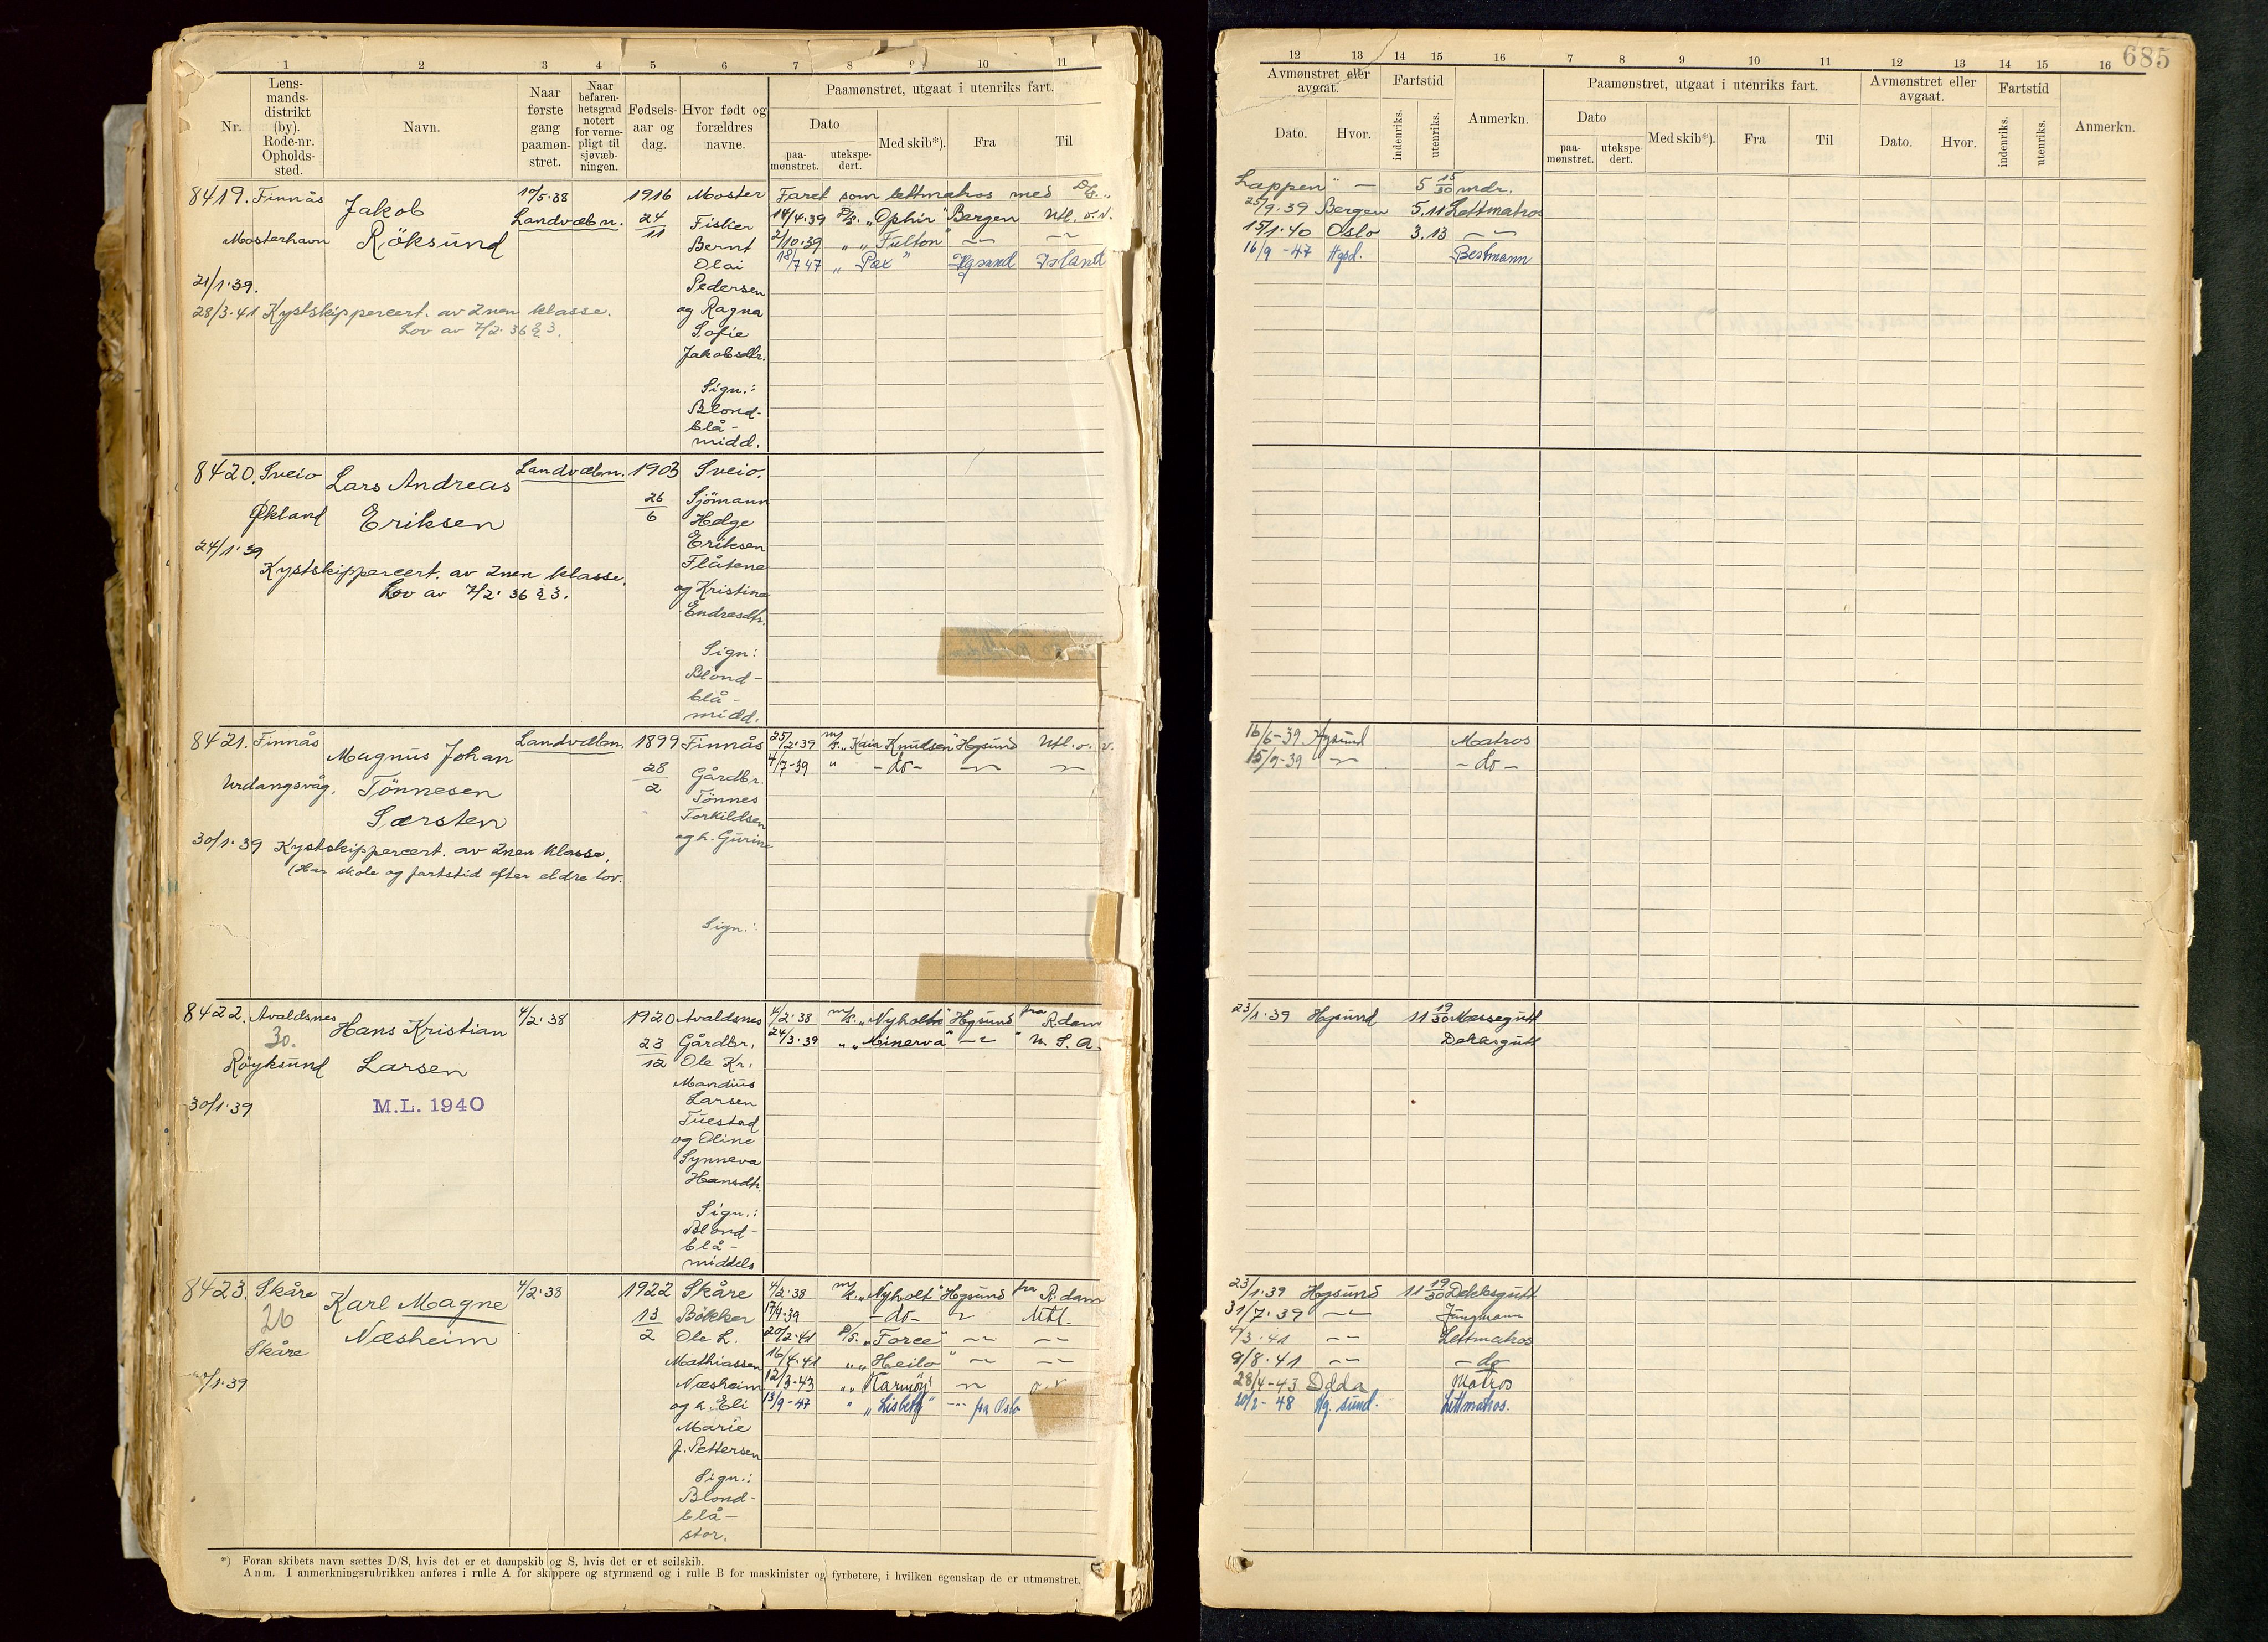 685
1 2 3 4 5 6 7 8 9 10 11
Nr.
Lens-
mands-
distrikt
(by).
Rode-nr.
Opholds-
sted.
Navn.
Naar
første
gang
paamøn-
stret.
Naar
befaren-
hetsgrad
notert
for verne-
pligt til
sjøvæb-
ningen.
Fødsels-
aar og
dag.
Hvor født og
forældres
navne.
Paamønstret, utgaat i utenriks fart.
Dato
paa-
mønstret.
utekspe-
dert.
Med skib*).
Fra
Til
12 13 14 15 16 7 8 9 10 11 12 13 14 15 16
Avmønstret eller
avgaat.
Dato.
Hvor.
Fartstid
indenriks.
utenriks.
Anmerkn.
Paamønstret, utgaat i utenriks fart.
Dato
paa-
mønstret.
utekspe-
dert.
Med skib*).
Fra
Til
Avmønstret eller
avgaat.
Dato.
Hvor.
Fartstid
indenriks.
utenriks.
Anmerkn.
8419. Finnås
Mosterhavn
21/1.39.
Jakob
Röksund
28/3.41 Kystskippercert. av 2nen klasse.
Lov av 7/2.36 § 3.
10/5.38
Landvæbn.
1916
24
11
Moster
Fisker
Bernt
Olai
Pedersen
og Ragna
Sofie
Jakobsdtr.
Sign.:
Blond-
blå-
midd.
Faret som lettmatros med D/S. "
Lappen" — 5 15/30 mdr.
14/4.39 D/S. "Ophir" Bergen Utl. o.v.
25/9.39 Bergen 5.11 Lettmatros
2/10.39 " "Fulton" —"— —"—
15/1.40 Oslo 3.13 —"—
18/7 47 " Pax " Hgsund Island
16/9 -47 Hgsd. Bestmann
8420. Sveio
Økland
24/1.39
Lars Andreas
Eriksen
Kystskippercert. av 2nen klasse.
Lov av 7/2.36 § 3.
Landvæbn.
1903
26
6
Sveio.
Sjömann
Helge
Eriksen
Flåtene
og Kristine
Endresdtr.
Sign:
Blond-
blå-
midd.
8421. Finnås
Urdangsvåg.
30/1.39
Magnus Johan
Tönnesen
Særsten
Kystskippercert. av 2nen klasse.
(Har skole og fartstid efter eldre lov.
Landvæbn.
1899
28
2
Finnås
Gårdbr.
Tönnes
Torkildsen
og h. Gurine
Sign.:
25/2.39 M/S. "Kaia Knudsen" Hgsund Utl. o. v.
16/6-39 Hgsund Matros
4/7-39 " - do - —"— —"—
15/9-39 —"— - do -
8422. Avaldsnes
30.
Röyksund
30/1.39
Hans Kristian
Larsen
M.L. 1940
4/2.38
1920
23
12
Avaldsnes
Gårdbr.
Ole Kr.
Mandius
Larsen
Tuestad
og Oline
Synneva
Hansdtr.
Sign.:
Blond-
blå-
middels
4/2.38 M/S. "Nyholt" Hgsund fra R.dam
23/1.39 Hgsund 11 19/30 Messegutt
24/3.39 " "Minerva" —"— " U. S. A.
Dekksgutt
8423. Skåre
26
Skåre
/1.39
Karl Magne
Næsheim
4/2.38
1922
13
2
Skåre
Bökker
Ole L.
Mathiassen
Næsheim
og h. Eli
Marie
f. Pettersen
Sign.:
Blond-
blå-
stor.
4/2.38 M/S. "Nyholt" Hgsund fra R.dam
23/1.39 Hgsund 11 19/30 Dekksgutt
17/4.39 - do - " Utl.
31/7.39 —"— Jungmann
20/2.41 D/S. "Force" —"— —"—
4/3.41 —"— Lettmatros
16/4.41 " "Heilo" —"— —"—
9/8.41 —"— - do -
12/3-43 " "Karmöy" —"— o.v.
28/4-43 Odda Matros
13/9-47 " "Lisbeth" —"— fra Oslo
20/2-48 Hg.sund. Lettmatros.
*) Foran skibets navn sættes D/S, hvis det er et dampskib og S, hvis det er et seilskib.
Anm. I anmerkningsrubrikken anføres i rulle A for skippere og styrmænd og i rulle B for maskinister og fyrbøtere, i hvilken egenskap de er utmønstret.